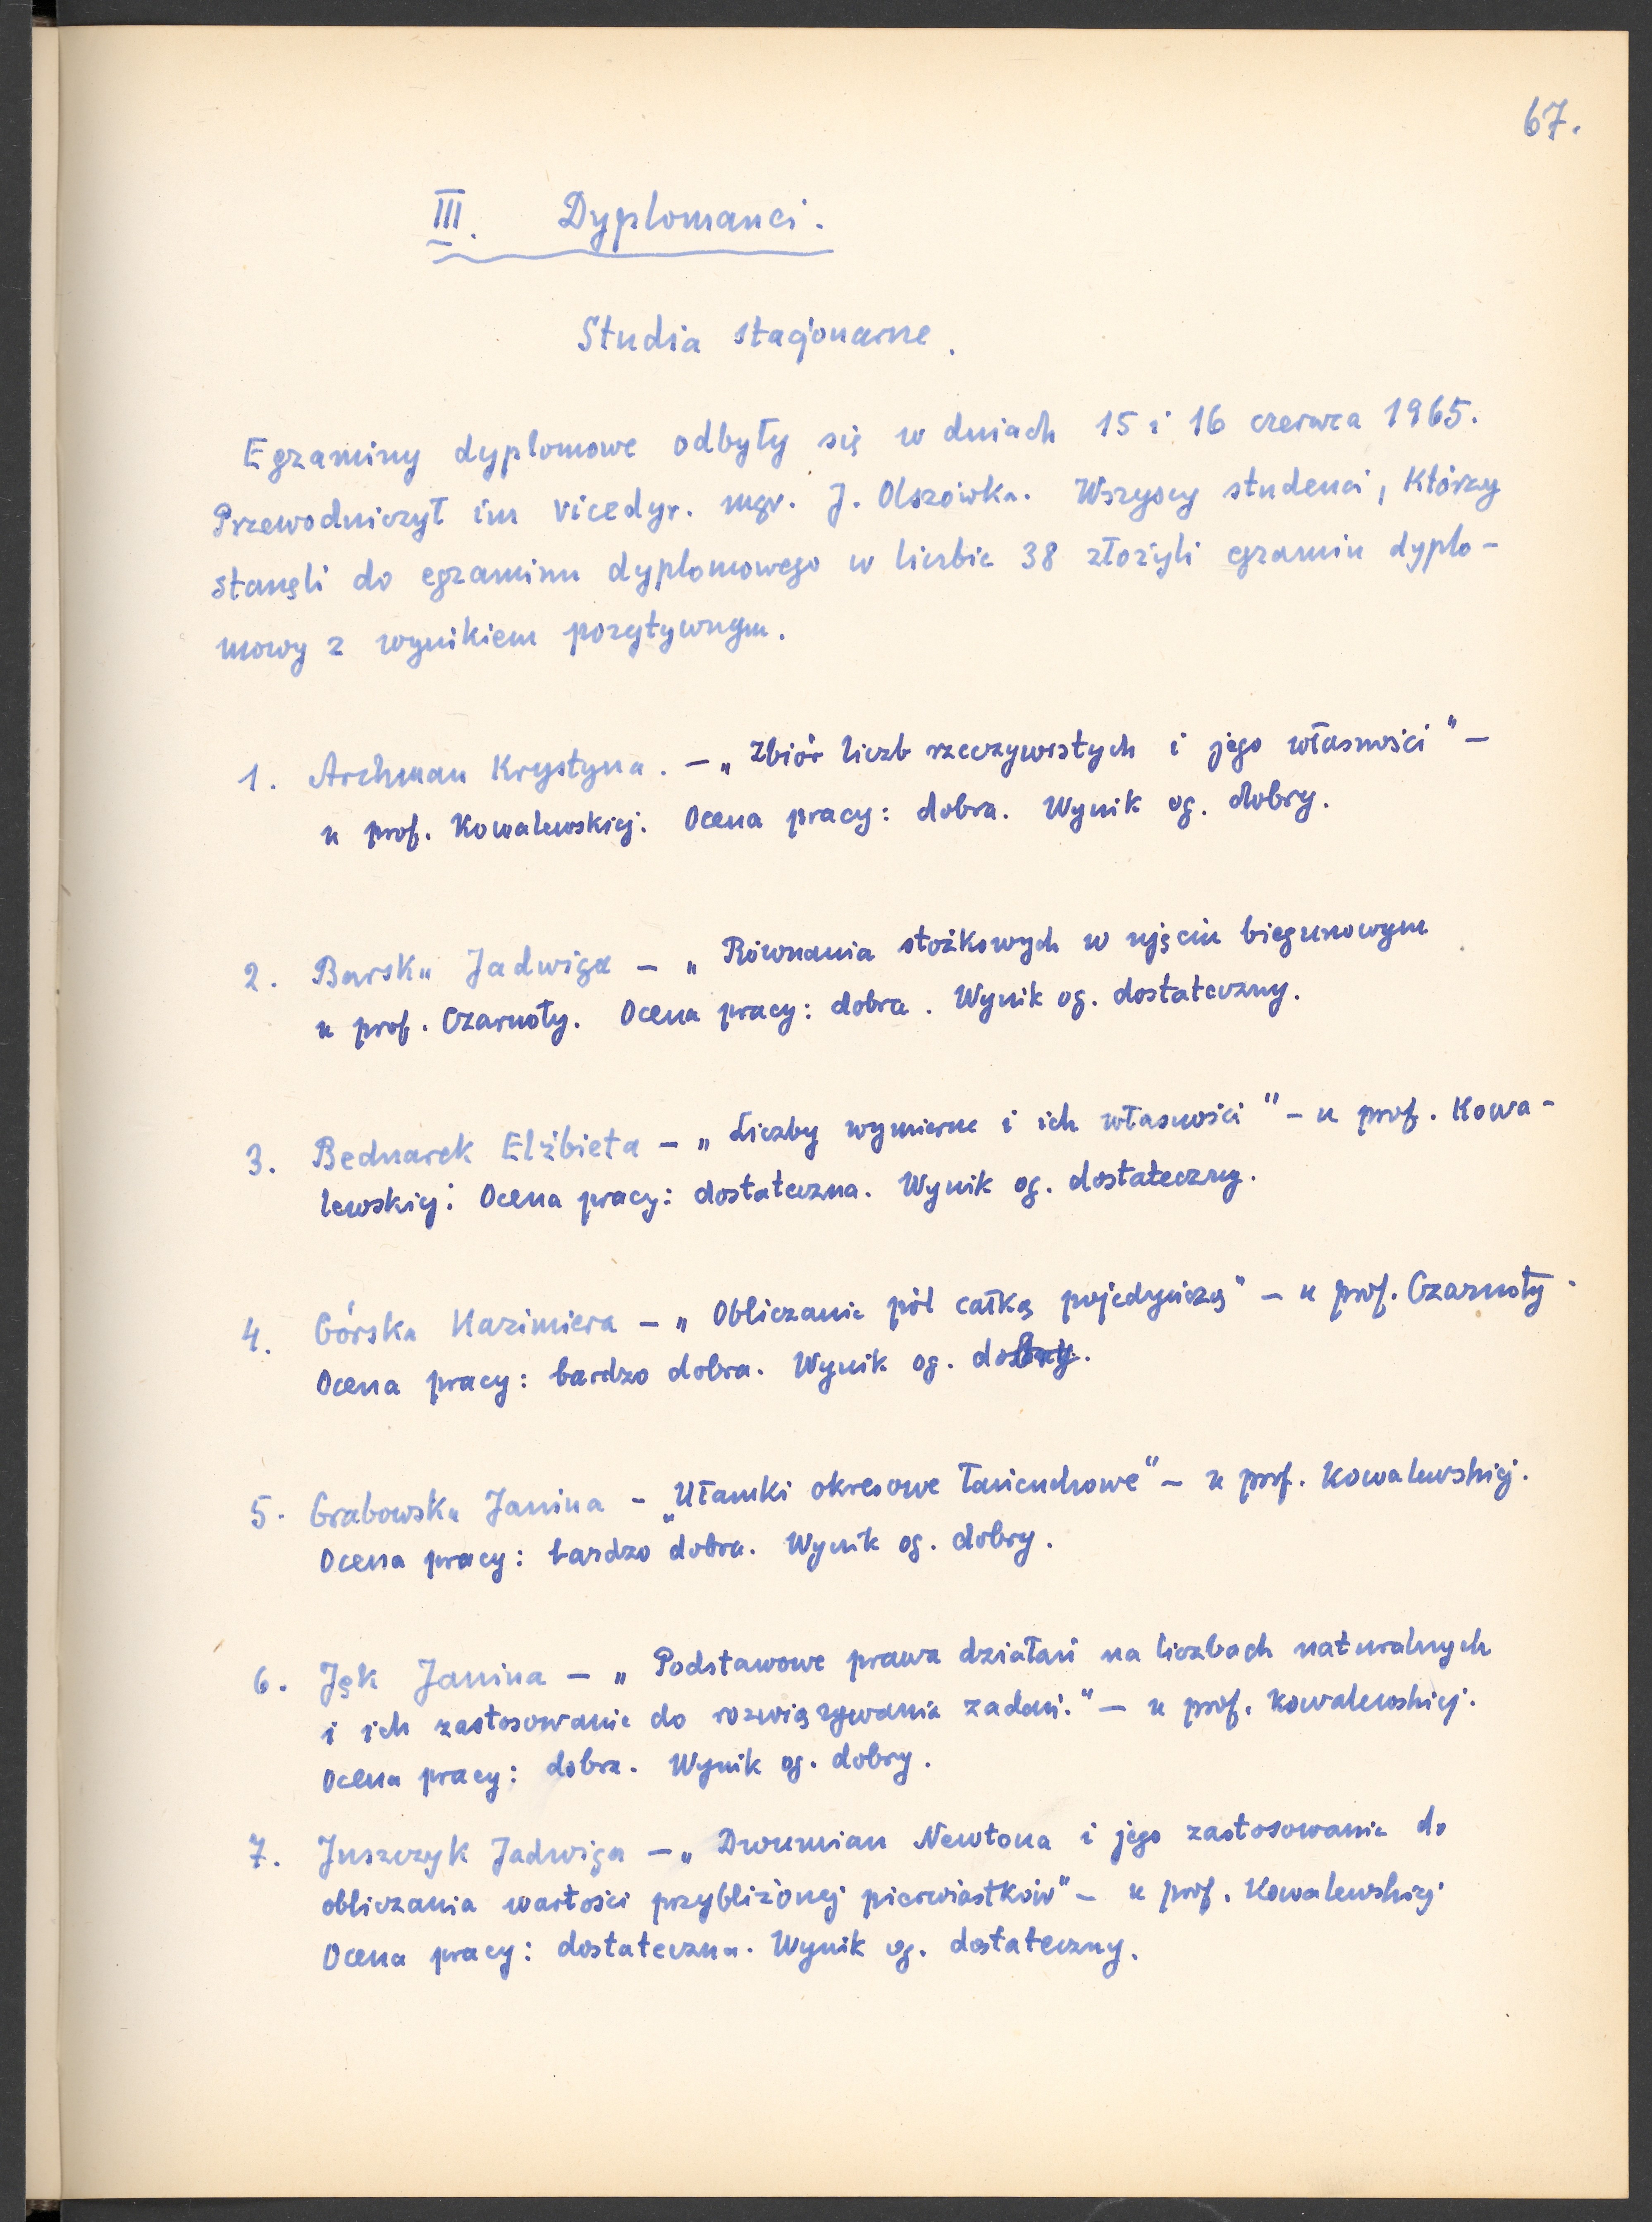 67.
III. Dyplomanci.
Studia stacjonarne.
Egzaminy dyplomowe odbyły się w dniach 15 i 16 czerwca 1965.
Przewodniczył im vicedyr. mgr. J. Olszówka. Wszyscy studenci, którzy
stanęli do egzaminu dyplomowego w liczbie 38 złożyli egzamin dyplo-
mowy z wynikiem pozytywnym.
1. Archman Krystyna. – „Zbiór liczb rzeczywistych i jego własności" –
u prof. Kowalewskiej. Ocena pracy: dobra. Wynik og. dobry.
2. Barska Jadwiga – „Równania stożkowych w ujęciu biegunowym
u prof. Czarnoty. Ocena pracy: dobra. Wynik og. dostateczny.
3. Bednarek Elżbieta – „Liczby wymierne i ich własności" – u prof. Kowa-
lewskiej. Ocena pracy: dostateczna. Wynik og. dostateczny.
4. Górska Kazimiera – „Obliczanie pól całką pojedynczą" – u prof. Czarnoty.
Ocena pracy: bardzo dobra. Wynik og. dobry.
5. Grabowska Janina – „Ułamki okresowe łańcuchowe" – u prof. Kowalewskiej.
Ocena pracy: bardzo dobra. Wynik og. dobry.
6. Jęk Janina – „Podstawowe prawa działań na liczbach naturalnych
i ich zastosowanie do rozwiązywania zadań." – u prof. Kowalewskiej.
Ocena pracy: dobra. Wynik og. dobry.
7. Juszczyk Jadwiga – „Dwumian Newtona i jego zastosowanie do
obliczania wartości przybliżonej pierwiastków" – u prof. Kowalewskiej
Ocena pracy: dostateczna. Wynik og. dostateczny.